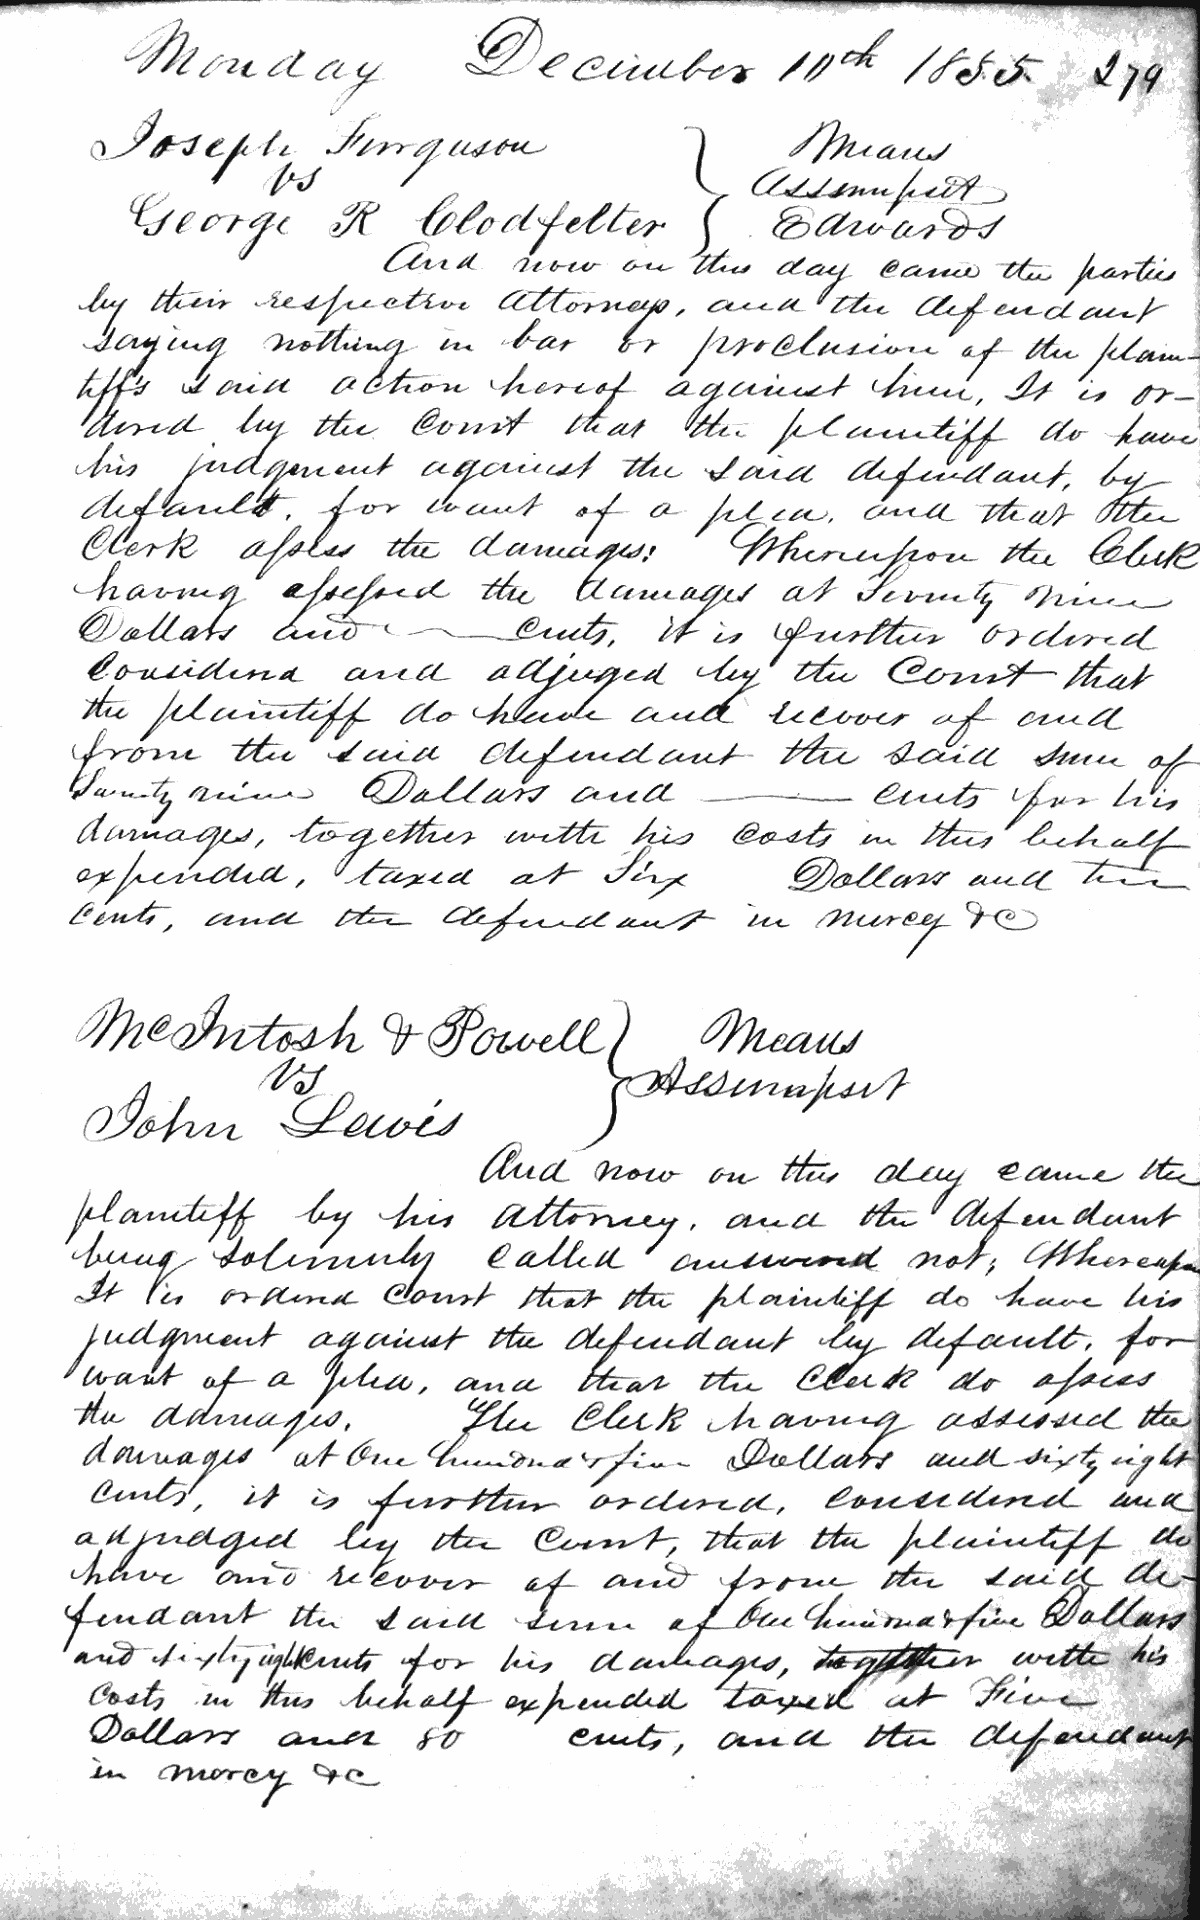 Monday December 10th 1855 279
Joseph Furguson } Means
vs Assumpsit
George R Clodfelter Edwards
And now on this day came the parties
by their respective attorneys, and the defendant
saying nothing in bar or preclusion of the plain-
tiff's said action hereof against him, It is or-
dered by the Court that the plaintiff do have
his judgment against the said defendant, by
default, for want of a plea, and that the
Clerk assess the damages: Whereupon the Clerk
having assessed the damages at Seventy nine
Dollars and — cents, it is further ordered
considered and adjuged by the Court that
the plaintiff do have and recover of and
from the said defendant the said sum of
Seventy nine Dollars and — cents for his
damages, together with his costs in this behalf
expended, taxed at Six Dollars and ten
cents, and the defendant in mercy &c
McIntosh & Powell } Means
vs Assumpsit
John Lewis
And now on this day came the
plaintiff by his attorney, and the defendant
being solemnly called answered not; Whereupon
It is ordered Court that the plaintiff do have his
judgment against the defendant by default, for
want of a plea, and that the Clerk do assess
the damages. The Clerk having assessed the
damages at One hundred & five Dollars and sixty eight
cents, it is further ordered, considered and
adjudged by the Court, that the plaintiff do
have and recover of and from the said de-
fendant the said sum of One hundred & five Dollars
and sixty eight cents for his damages, together with his
costs in this behalf expended taxed at Five
Dollars and 80 cents, and the defendant
in mercy &c